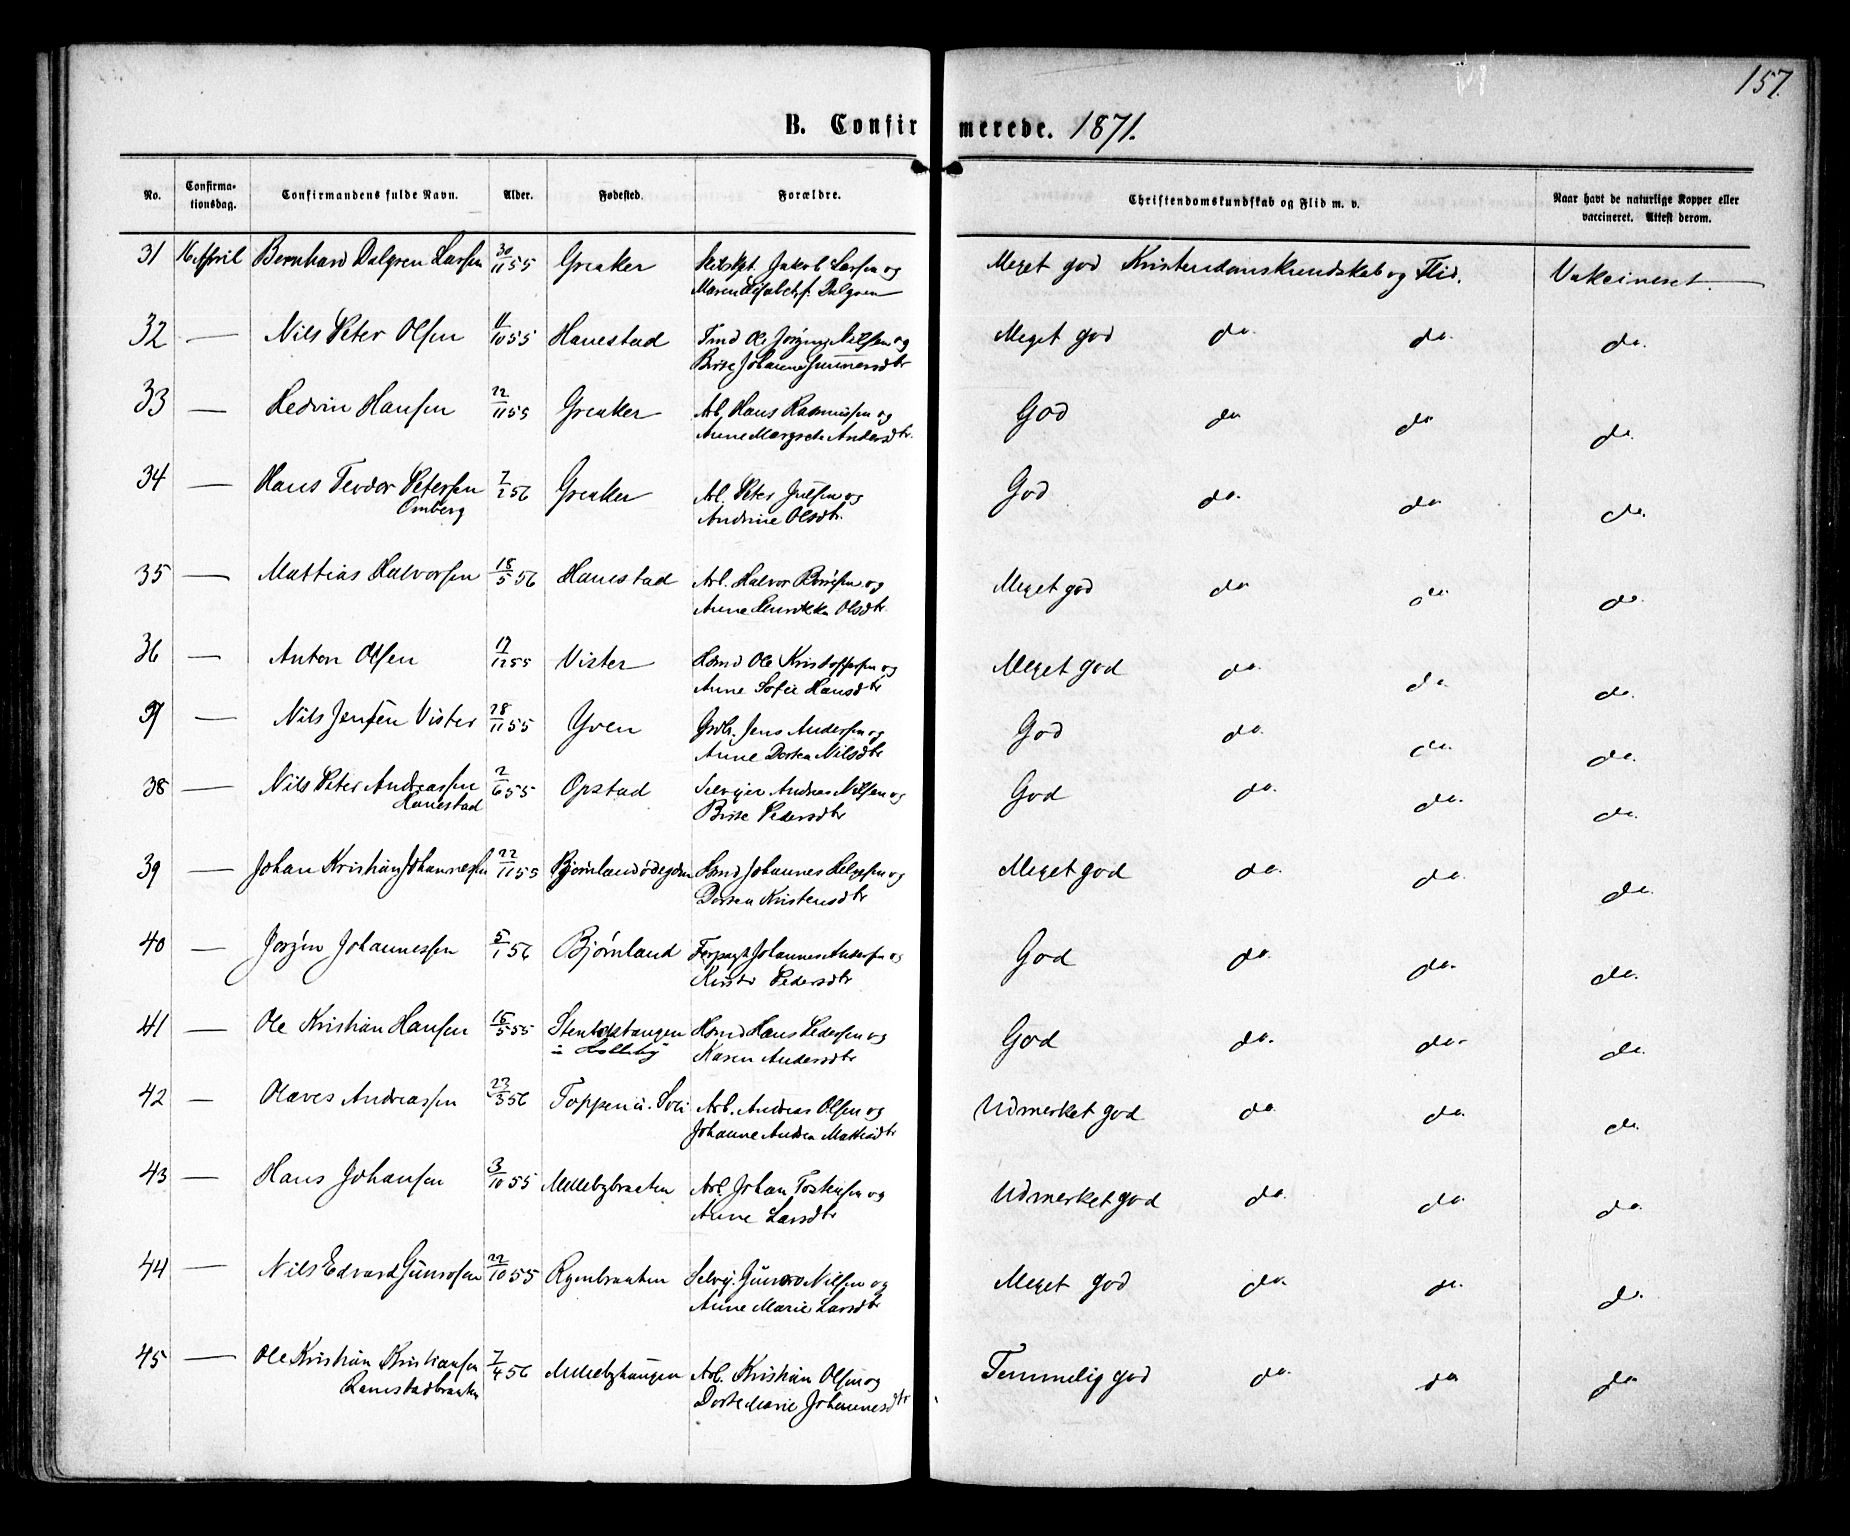 157.
B. Confirmerede. 1871.
No. Confirmationsdag. Confirmandens fulde Navn. Alder. Fødested. Forældre. Christendomskundskab og Flid m. v. Naar havt de naturlige Kopper eller vaccineret. Attest derom.
31 16 April Bernhard Dalgren Larsen 30/11 55 Greaker Jakob Larsen og Meget god Kristendomskundskab og Flid. Vakcineret.
Maren Dalgren
32 — Nils Peter Olsen 11/10 55 Hanestad Ole Jørgen Nilsen og Meget god do. do. do.
Birte Johanne Gunnersdtr
33 — Hedvin Hansen 22/11 55 Greaker Arb. Hans Rasmussen og God do do do.
Anne Margrete Andersdtr.
34 — Hans Teodor Petersen 7/2 56 Greaker Arb. Peter Julsen og God do. do. do.
Omberg Andrine Olsdtr.
35 — Mattias Halvorsen 18/5 56 Hanestad Arb. Halvor og Meget god do do. do.
Anne Henrikka Olsdtr.
36 — Anton Olsen 17/12 55 Vister Hsmd Ole Kristoffersen og Meget god do. do. do.
Anne Sofie Hansdtr
37 — Nils Jensen Vister 28/11 55 Yven Grdbr. Jens Andersen og God do. do. do.
Anne Dortea Nilsdtr
38 — Nils Peter Andreassen 2/6 55 Opstad Selvejer Andreas Nilsen og God do. do. do.
Hanestad Birte Pedersdtr
39 — Johan Kristian Johannessen 22/11 55 Bjørnlandødegden Hsmd Johannes Helgesen og Meget god do. do. do.
Dortea Kristensdtr
40 — Jørgen Johannessen 5/1 56 Bjørnland Forpagt. Johannes Andersen og God do. do. do.
Pedersdtr
41 — Ole Kristian Hansen 16/5 55 Hsmd Hans Pedersen og God do. do. do.
u Holleby Karen Andersdtr
42 — Olaves Andreassen 23/3 56 Toppen u. Soli Arb. Andreas Olsen og Udmerket god do. do. do.
Johanne Andrea Mattisdtr
43 — Hans Johansen 3/10 55 Mellebybraaten Arb. Johan Tostensen og Udmerket god do. do. do.
Anne Larsdtr
44 — Nils Edvard Gunrosen 22/10 55 Rygmbraaten Selvej. Gunro Nilsen og Meget god do. do. do.
Anne Marie Larsdtr
45 — Ole Kristian Kristiansen 7/4 56 Mellebyhaugen Arb. Kristian Olsen og Temmelig god do. do do
Ramstadbraaten Dorte Marie Johannesdtr